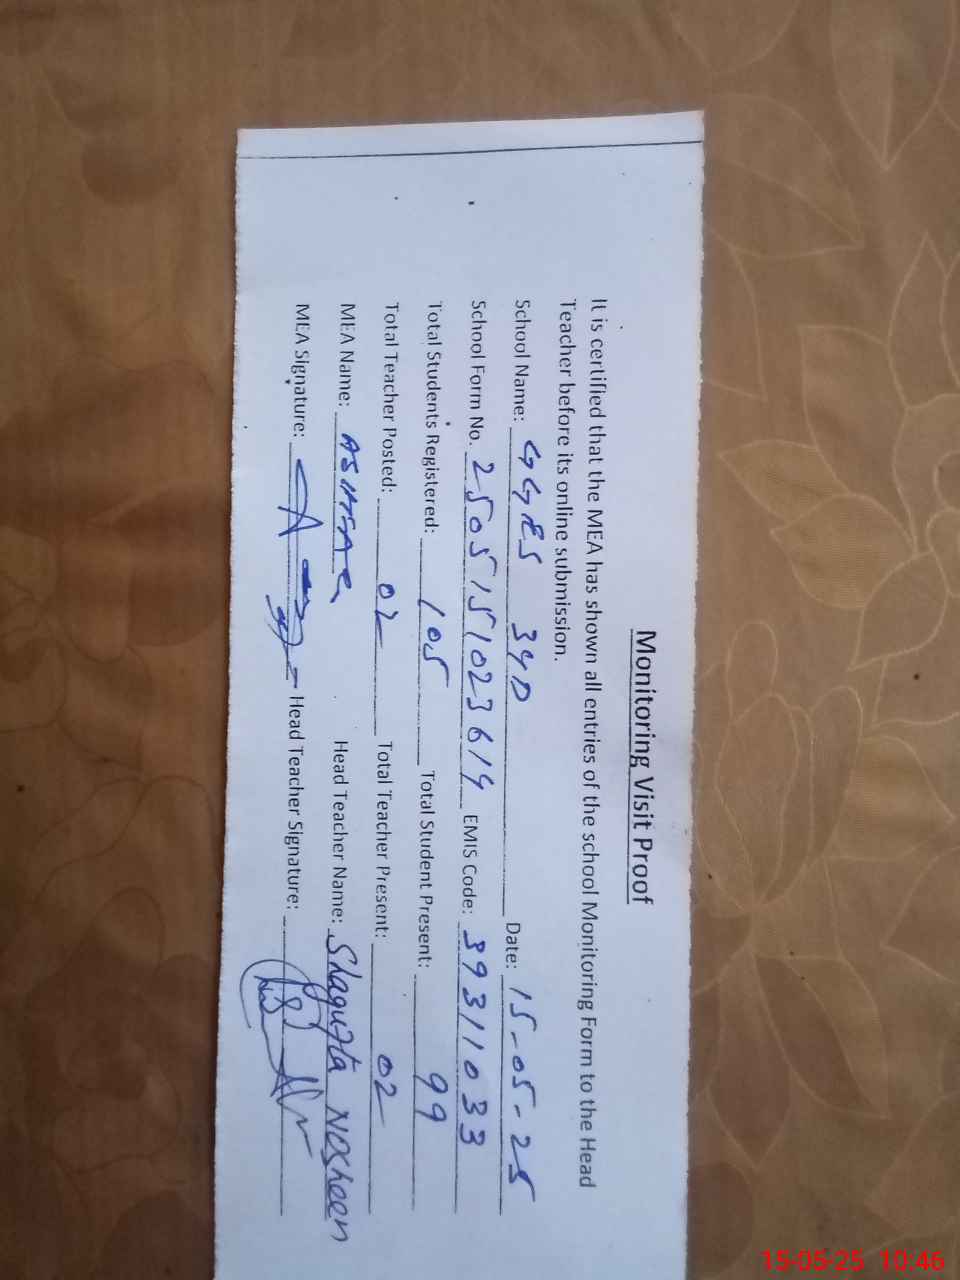 Monitoring Visit Proof
It is certified that the MEA has shown all entries of the school Monitoring Form to the Head
Teacher before its online submission.
School Name: GGES 34D Date: 15-05-25
School Form No. 2505151023614 EMIS Code: 39311033
Total Students Registered: 105 Total Student Present: 99
Total Teacher Posted: 02 Total Teacher Present: 02
MEA Name: Head Teacher Name: Shagufta Nosheen
MEA Signature: Head Teacher Signature:
15-05-25 10:46